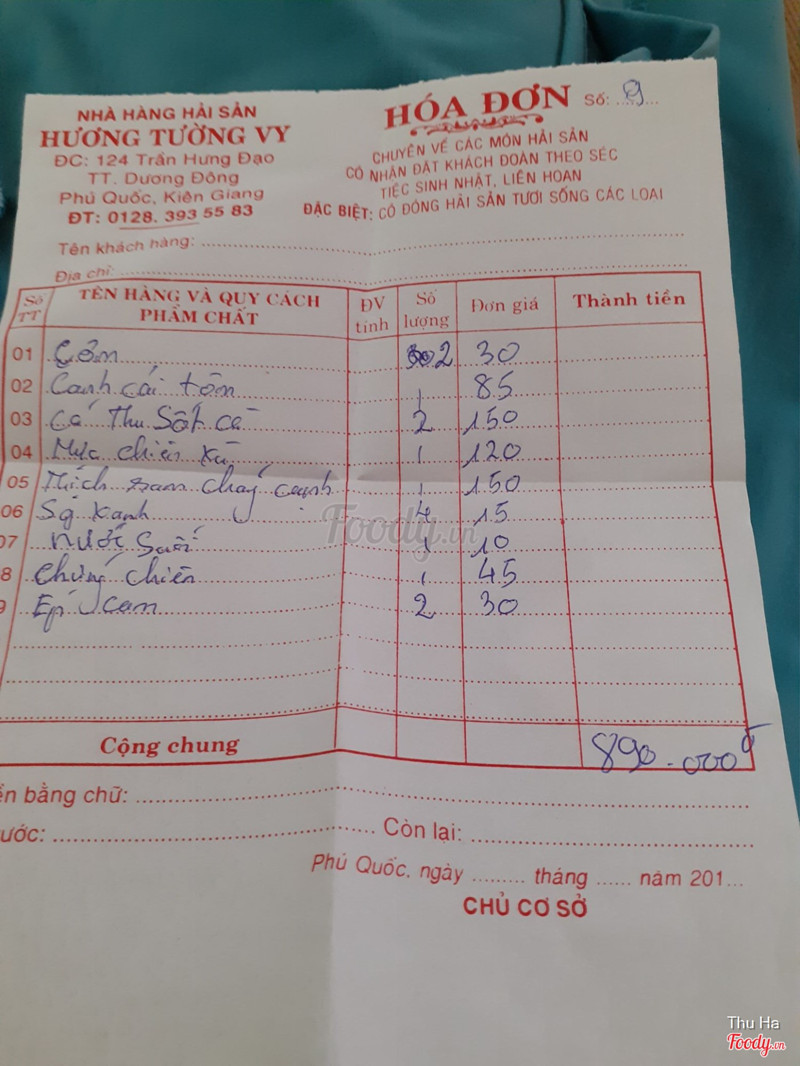 NHÀ HÀNG HẢI SẢN
HƯƠNG TƯỜNG VY
ĐC: 124 Trần Hưng Đạo
TT. Dương Đông
Phú Quốc, Kiên Giang
ĐT: 0128. 393 55 83
HÓA ĐƠN Số: 9
CHUYÊN VỀ CÁC MÓN HẢI SẢN
CÓ NHẬN ĐẶT KHÁCH ĐOÀN THEO SÉC
TIỆC SINH NHẬT, LIÊN HOAN
ĐẶC BIỆT: CÓ ĐÔNG HẢI SẢN TƯƠI SỐNG CÁC LOẠI
Tên khách hàng:
Địa chỉ:
Số TT TÊN HÀNG VÀ QUY CÁCH PHẨM CHẤT ĐV tính Số lượng Đơn giá Thành tiền
01 Cơm 2 30
02 Canh cải tôm 1 85
03 Cá Thu Sốt cà 2 150
04 Mực chiên xù 1 120
05 xam cháy cạnh 1 150
06 Sg Xanh 4 15
07 nước suối 1 10
8 chứng chiên 1 45
9 Ép cam 2 30
Cộng chung 890.000đ
ền bằng chữ:
ước: Còn lại:
Phú Quốc, ngày ......... tháng ...... năm 201...
CHỦ CƠ SỞ
Foody.vn
Thu Ha
Foody.vn